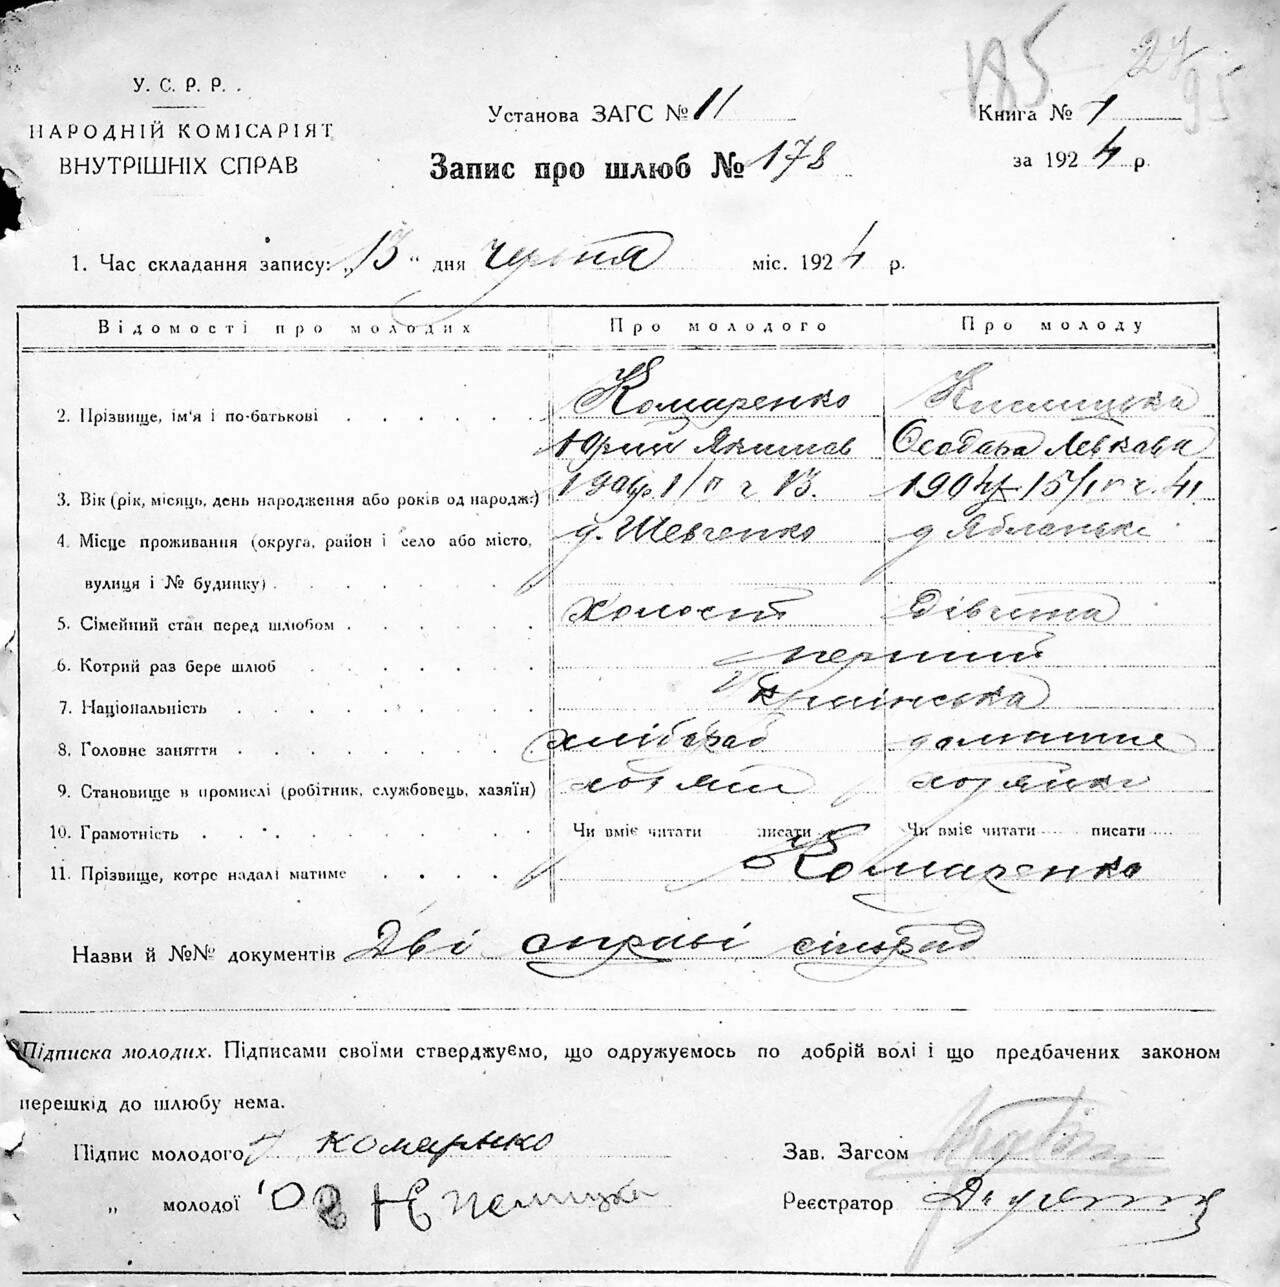 185 24
95
У. С. Р. Р.
НАРОДНІЙ КОМІСАРІЯТ
ВНУТРІШНІХ СПРАВ
Установа ЗАГС № 11
Книга № 1
Запис про шлюб № 178
за 1924 р.
1. Час складання запису: „13“ дня червня міс. 1924 р.
Відомості про молодих Про молодого Про молоду
2. Прізвище, ім'я і по-батькові Комаренко Кислицька
Юрий Якимов Феодора Левкова
3. Вік (рік, місяць, день народження або років од народж.)
4. Місце проживання (округа, район і село або місто, д. Шевченко д
вулиця і № будинку)
5. Сімейний стан перед шлюбом холост дівчина
6. Котрий раз бере шлюб перший
7. Національність Українська
8. Головне заняття хлібороб домашнє
9. Становище в промислі (робітник, службовець, хазяїн) хозяїн хозяйка
10. Грамотність Чи вміє читати писати Чи вміє читати писати
11. Прізвище, котре надалі матиме Комаренко
Назви й №№ документів Дві справі сільрад
Підписка молодих. Підписами своїми стверджуємо, що одружуємось по добрій волі і що предбачених законом
перешкід до шлюбу нема.
Підпис молодого Комаренко
Зав. Загсом
„ молодої
Реєстратор